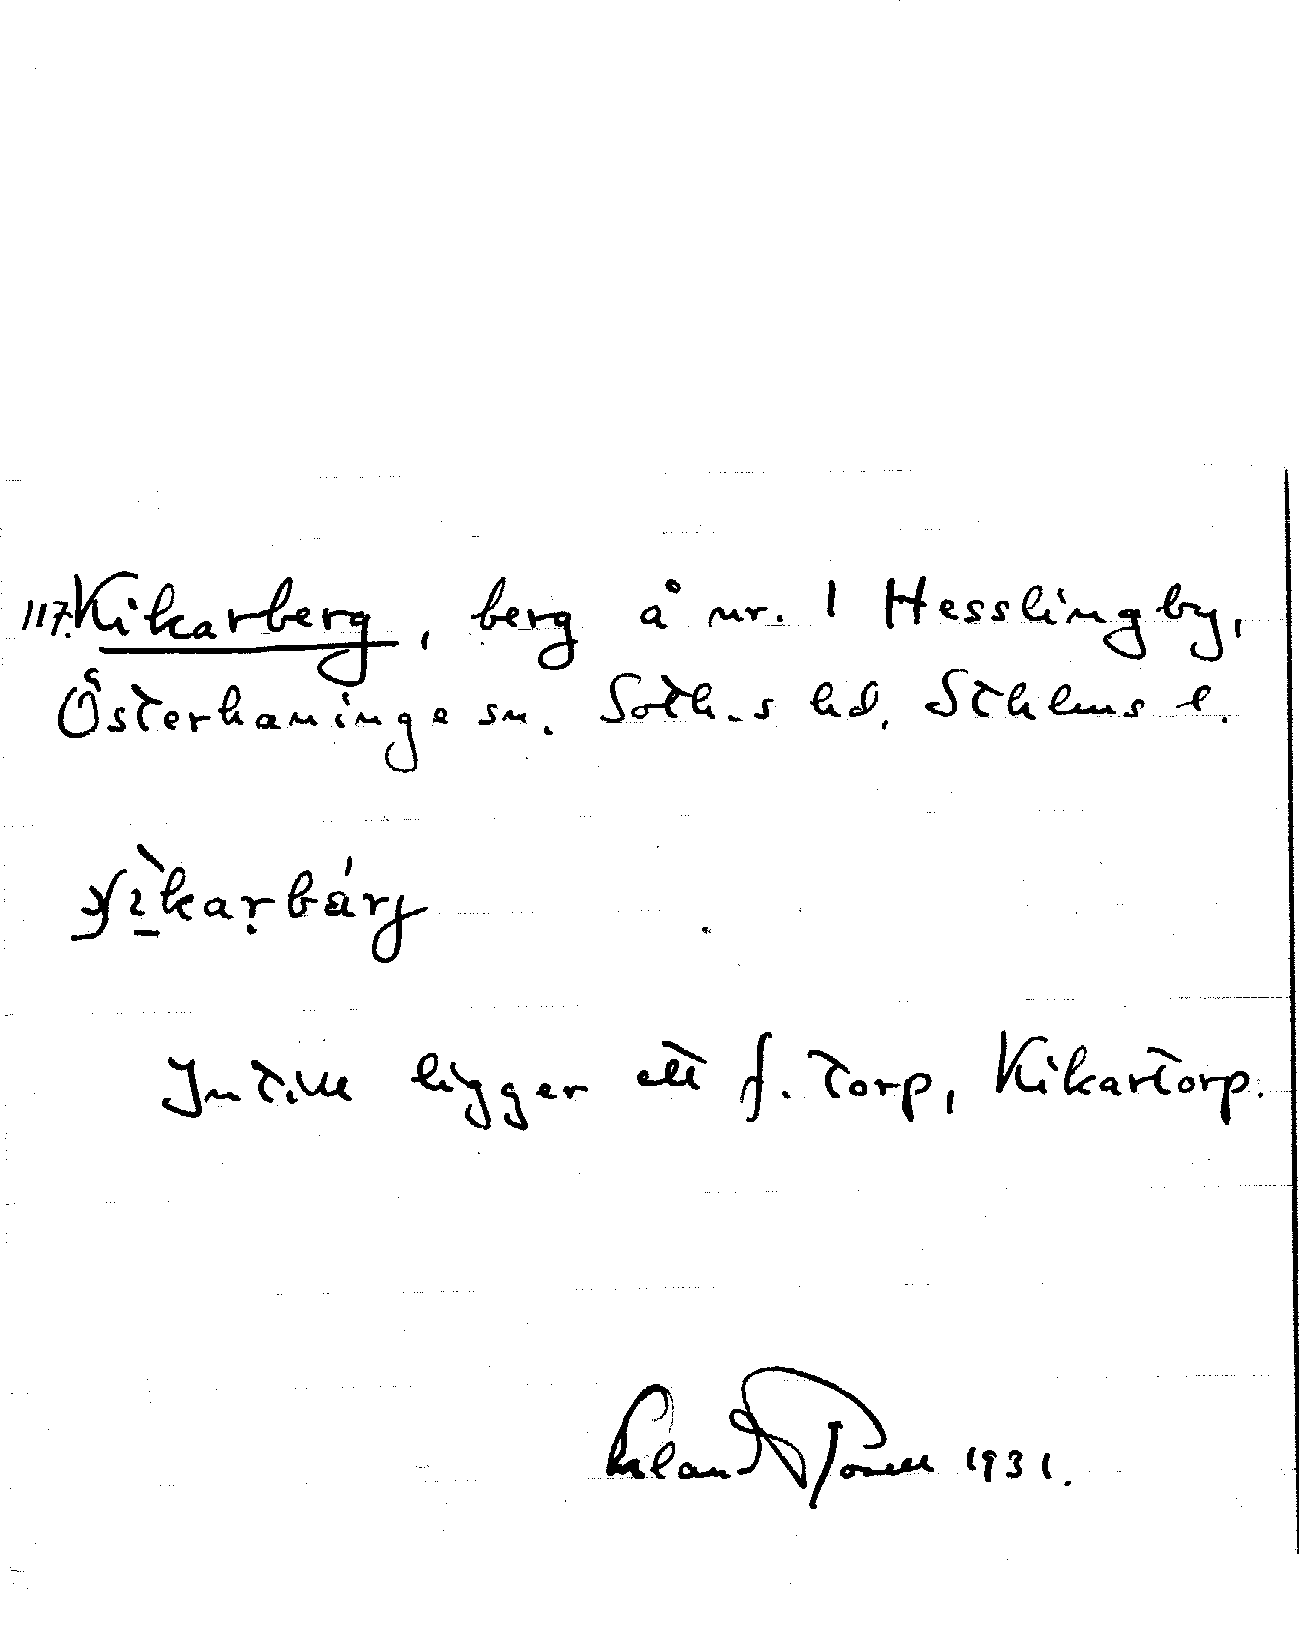 117. Kikarberg, berg å nr. 1 Hesslingby,
Österhaninge sn. Soth.s hd. Sthlms l.
Intill ligger ett f. torp, Kikartorp.
Erland Rosell 1931.